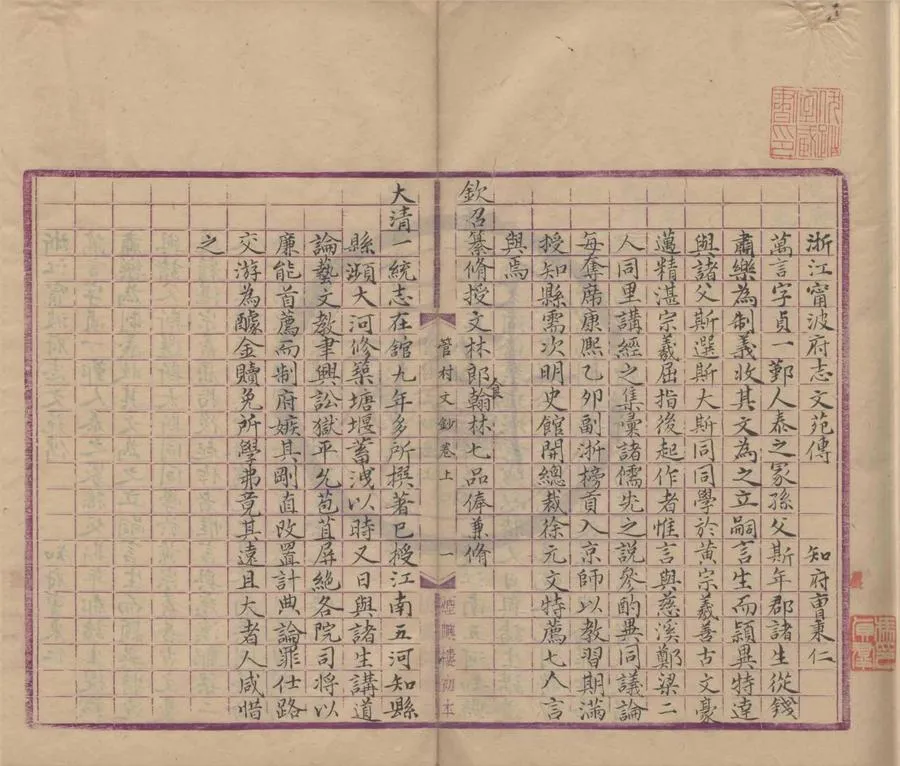 浙江甯波府志文苑傳　知府曹秉仁
萬言字貞一鄞人泰之冢孫父斯年郡諸生從錢
肅樂為制義收其文為之立嗣言生而穎異特達
與諸父斯選斯大斯同同學於黃宗羲善古文豪
邁精湛宗羲屈指後起作者惟言與慈溪鄭梁二
人同里講經之集彚諸儒先之說參酌異同議論
每奪席康熙乙卯副浙榜貢入京師以教習期滿
授知縣需次明史館開總裁徐元文特薦七人言
與焉
欽召纂脩授文林郎翰林七品俸兼脩
食
管村文鈔卷上　一
煙嶼樓初本
大清一統志在館九年多所撰著已授江南五河知縣
縣瀕大河修築塘堰蓄洩以時又日與諸生講道
論藝文教聿興訟獄平允苞苴屏絕各院司將以
廉能首薦而制府嫉其剛直改置計典論罪仕路
交游為醵金贖免所學弗竟其遠且大者人咸惜
之